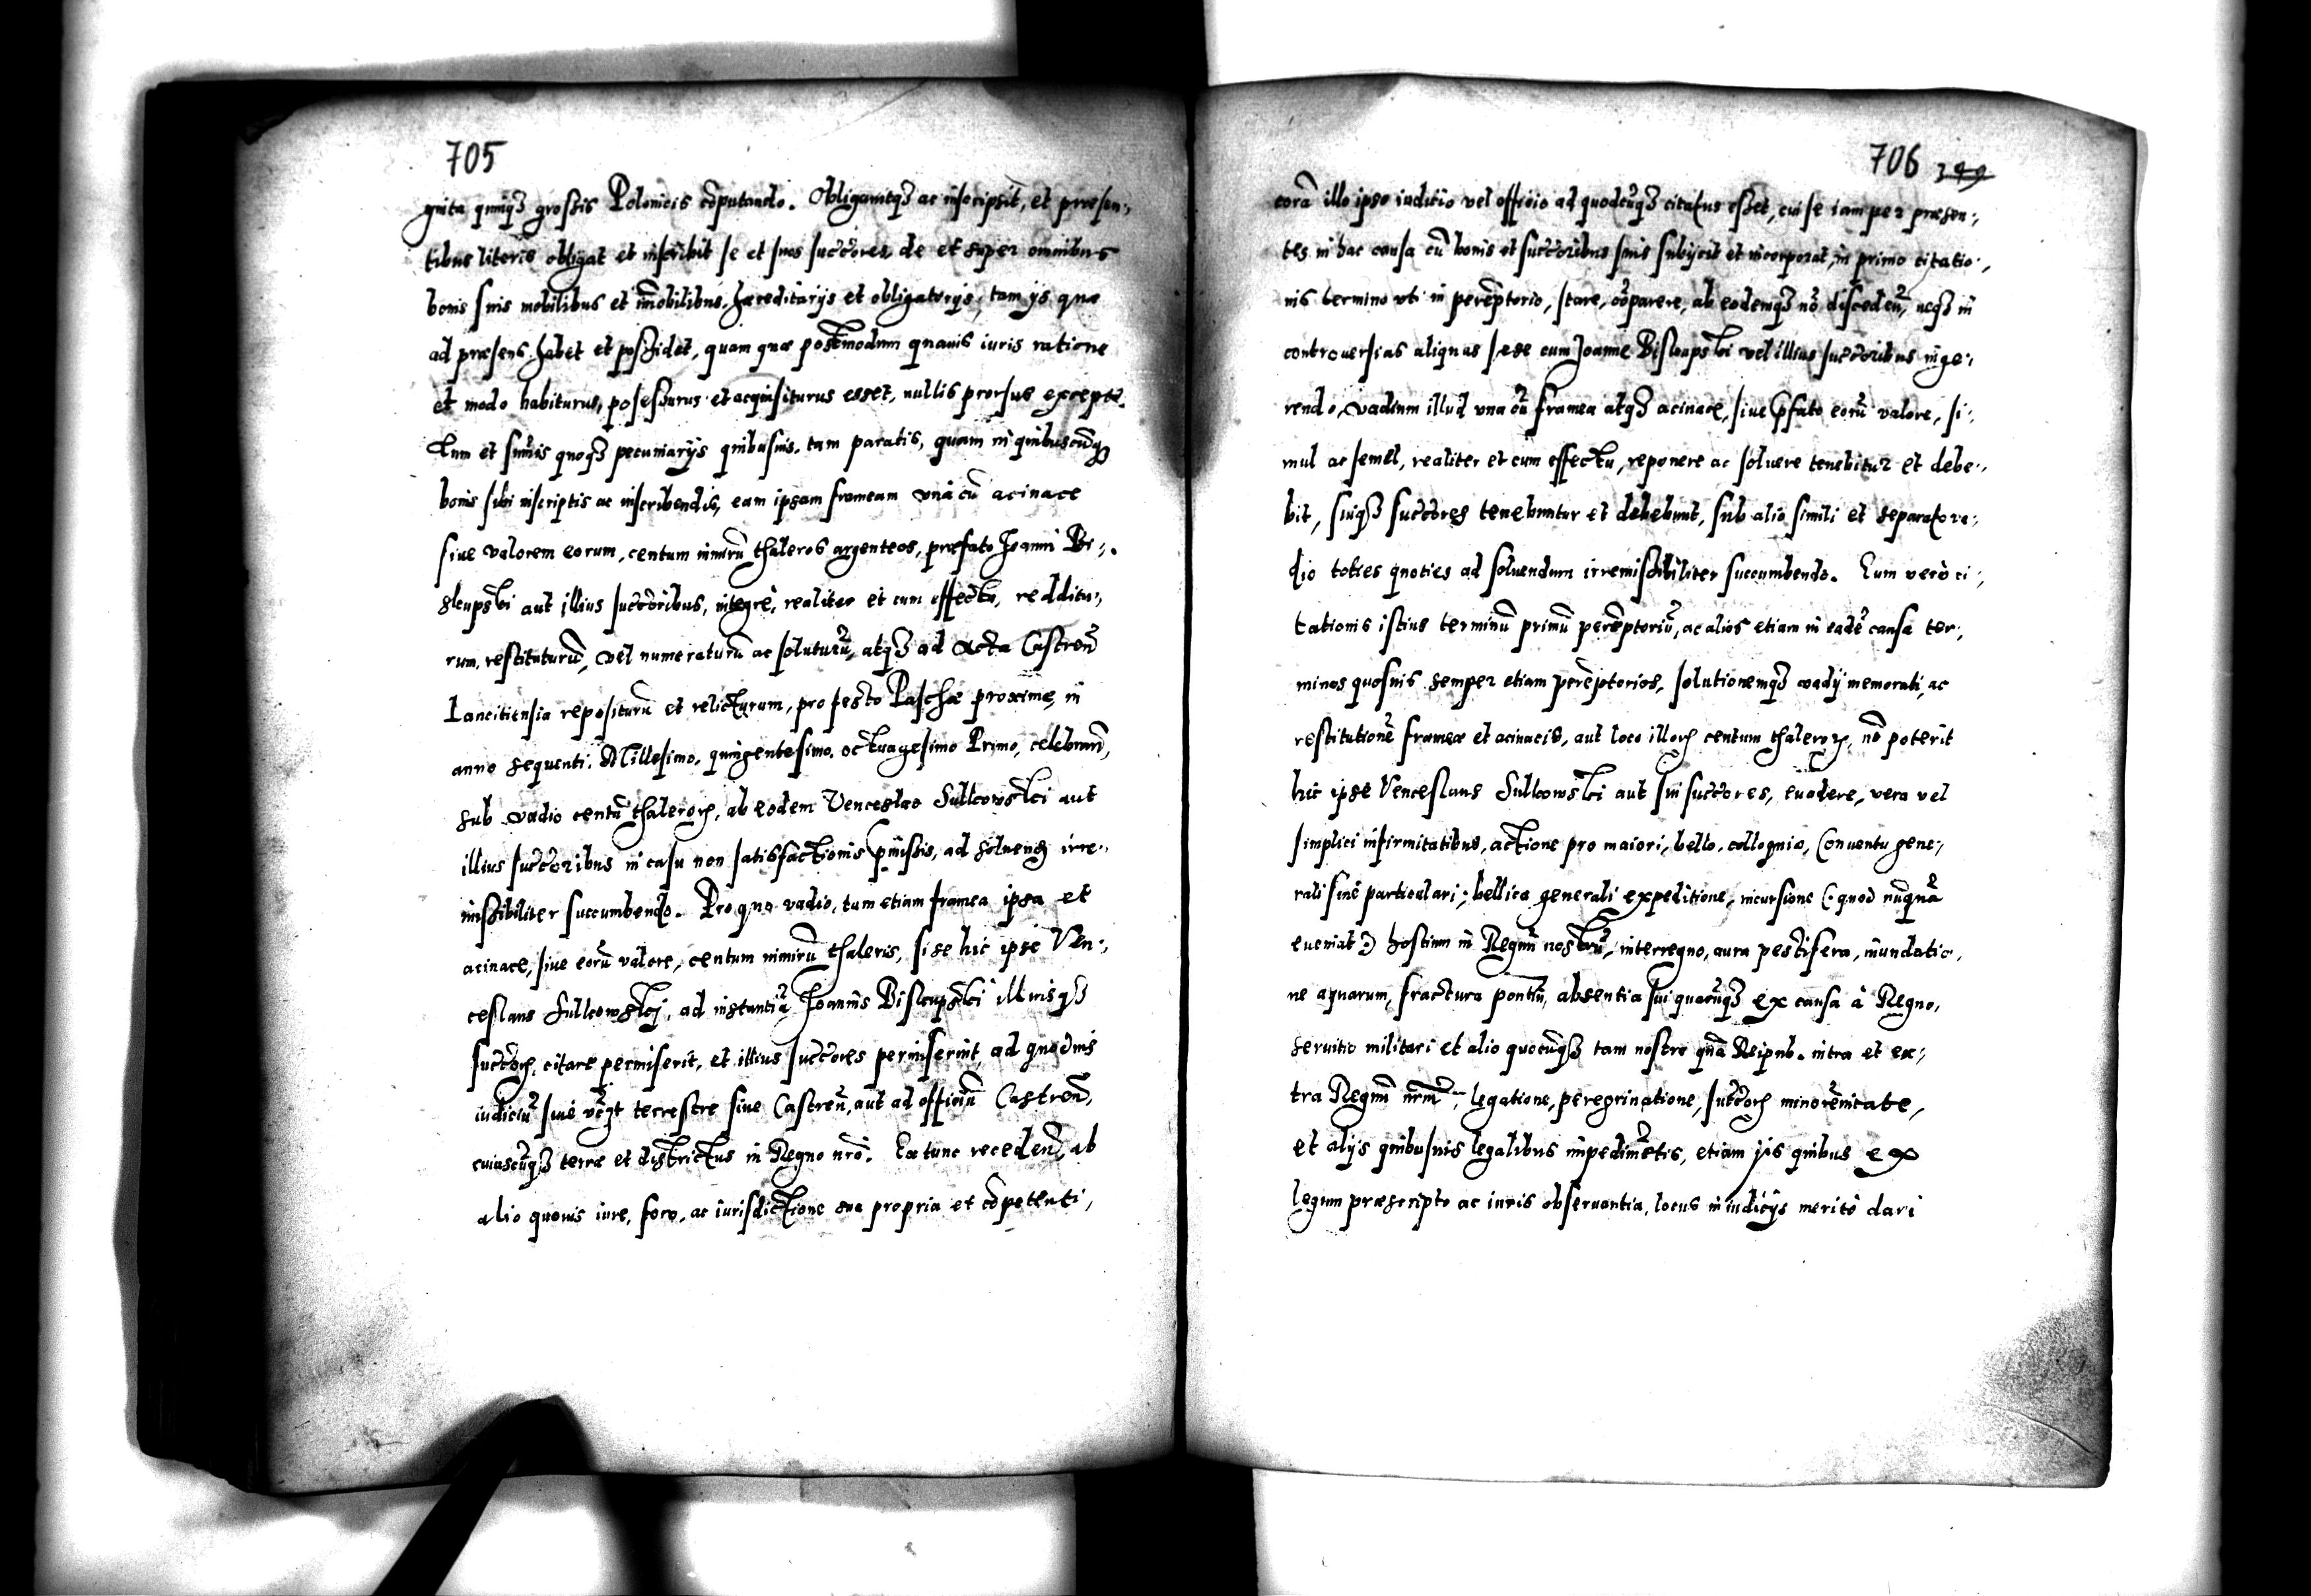 705
ginta quinq3 grossis Polonicis cõputando. Obligavitq3 ac inscripsit, et præsen-,
tibus literis obligat et inscribit se et suos succores de et super omnibus
bonis suis mobilibus et im̃obilibus, hæreditarijs et obligatorijs, tam ijs quæ
ad præsens habet et possidet, quam quæ postmodum quavis iuris ratione
et modo habiturus, possessurus et acquisiturus esset, nullis prorsus except.
Tum et sum̃is quoq3 pecuniarijs quibusvis, tam paratis, quam in quibuscũq3
bonis sibi inscriptis ac inscribendis, eam ipsam frameam unà cũ acinace
sive valorem eorum, centum nimirũ thaleros argenteos, præfato Joanni Bi-,
skupski aut illius succoribus, integrè, realiter et cum effectu, redditu-,
rum, restituturũ, vel numeraturũ ac soluturũ, atq3 ad Acta Castreñ
Lancitiensia repositurũ et relicturum, pro festo Paschæ proximæ, in
anno sequenti. Millesimo, quingentesimo, octuagesimo Primo, celebrañ,
sub vadio centũ thalerorꝝ, ab eodem Venceslao Sulkowski aut
illius succoribus in casu non satisfactionis p̃missis, ad solvend irre-,
missibiliter succumbendo. Pro quo vadio, tum etiam framea ipsa et
acinace, sive eorũ valore, centum nimirũ thaleris, si se hic ipse Ven-,
ceslaus Sulkowskj, ad instantiã Joannis Biskupski illiusq3
succorꝝ, citare permiserit, et illius succores permiserint, ad quodvis
iudiciũ sive vꝫt terrestre sive Castreñ, aut ad officiũ Castreñ,
cuiuscũq3 terræ et districtus in Regno nr̃o. Ex tunc recedeñ, ab
alio quovis iure, foro, ac iurisdictione sua propria et cõpetenti,
706 349
corã illo ipso iudicio vel officio ad quodcũq3 citatus esset, cui se iam per præsen-,
tes in hac causa cũ bonis et succoribus suis subijcit et incorporat, in primo citatio-,
nis termino uti in perẽptorio, stare, cõparere, ab eodemq3 nõ discedeñ, neq3 in
controversias aliquas sese cum Joanne Biskupski vel illius succoribus inge-,
rendo, vadium illud una cũ framea atq3 acinace, sive p̃fato eorũ valore, si-,
mul ac semel, realiter et cum effectu, reponere ac solvere tenebitur et debe-,
bit, suiq3 succores tenebuntur et debebunt, sub alio simili et separato va-,
dio toties quoties ad solvendum irremissibiliter succumbendo. Eum verò ci-,
tationis istius terminũ primũ perẽptoriũ, ac alios etiam in eadẽ causa ter-,
minos quosvis semper etiam perẽptorios, solutionemq3 vadij memorati, ac
restitutionẽ frameæ et acinacis, aut loco illorꝝ centum thalerorꝝ, nõ poterit
hic ipse Venceslaus Sulkowski aut sui succores, evadere, vera vel
simplici infirmitatibus, actione pro maiori, bello, colloquio, Conventu gene-,
rali sive particulari, bellica generali expeditione, incursione (: quod nũquã
eveniat :) hostium in Regnũ nostrũ, interregno, aura pestifera, inundatio-,
ne aquarum, fractura pontiũ, absentia sui quacũq3 ex causa à Regno,
servitio militari et alio quocũq3 tam nostro quã Reipub. intra et ex-,
tra Regnũ nr̃m, legatione, peregrinatione, succorꝝ minorẽnitate,
et alijs quibusvis legalibus impedimẽtis, etiam ijs quibus ex
legum præscripto ac iuris observantia, locus in iudicijs meritò dari